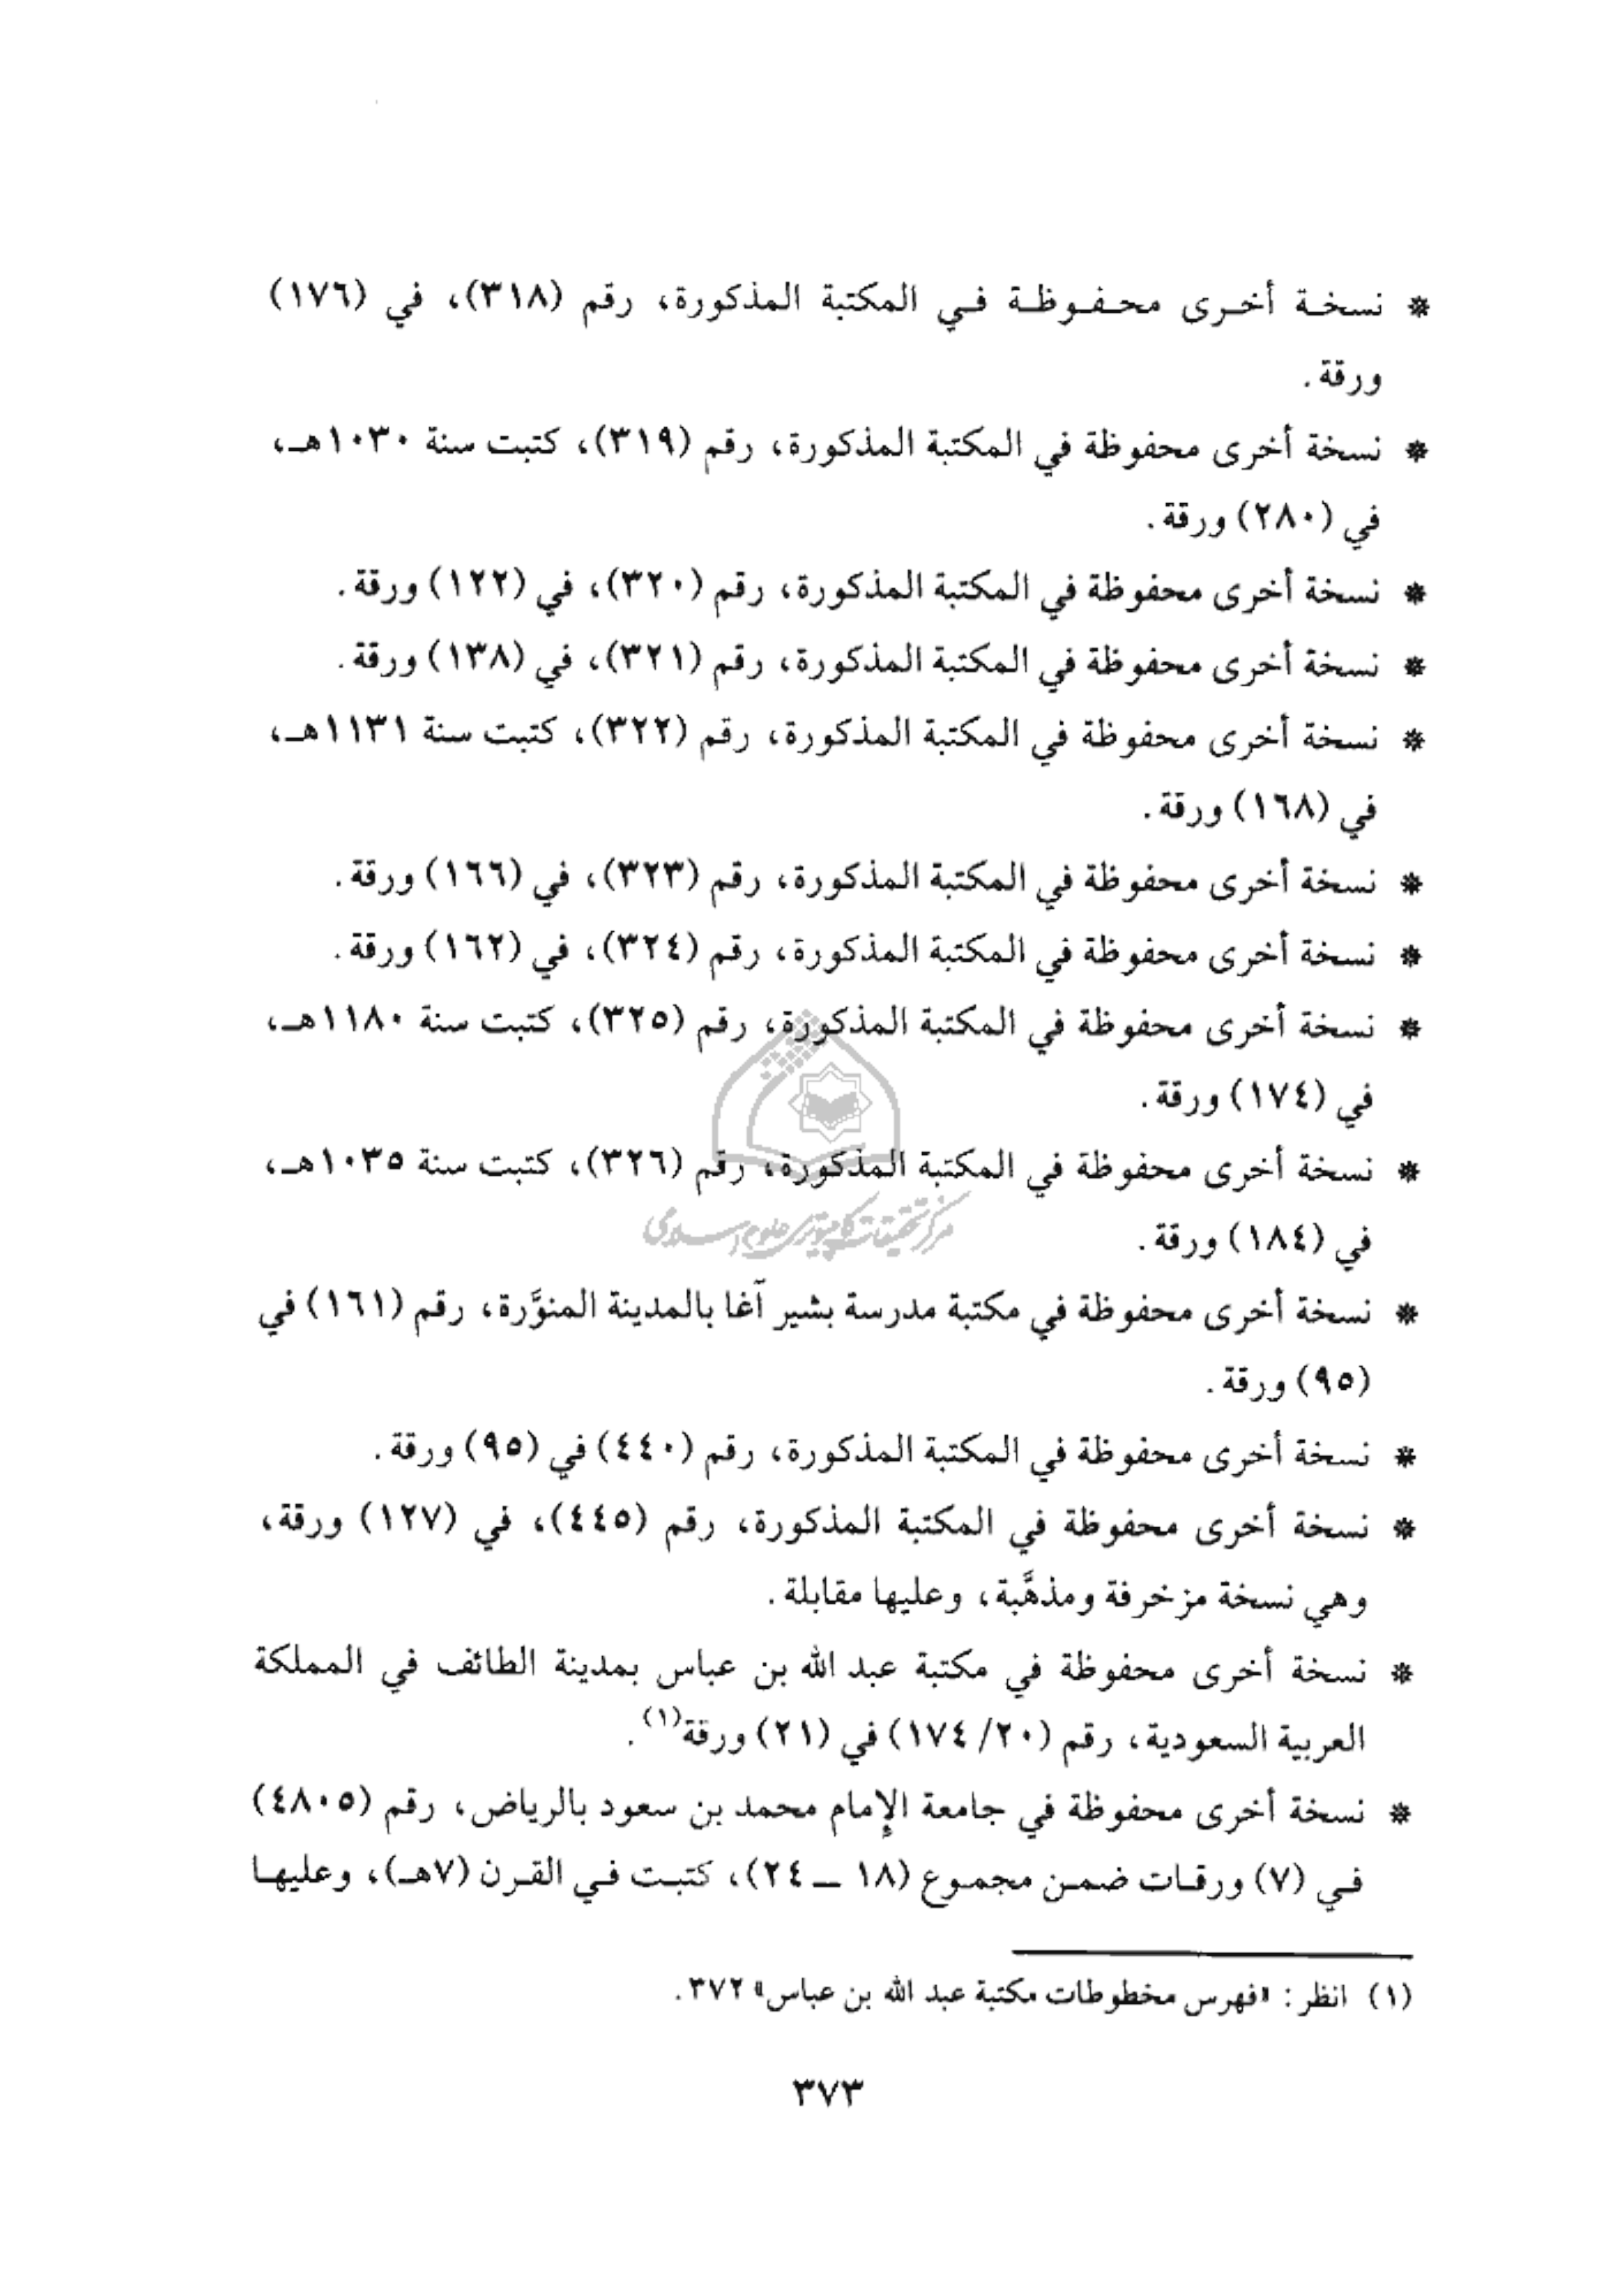 * نسخة أخرى محفوظة في المكتبة المذكورة، رقم (٣١٨)، في (١٧٦)
ورقة.
* نسخة أخرى محفوظة في المكتبة المذكورة، رقم (٣١٩)، كتبت سنة ١٠٣٠هـ،
في (٢٨٠) ورقة.
* نسخة أخرى محفوظة في المكتبة المذكورة، رقم (٣٢٠)، في (١٢٢) ورقة.
* نسخة أخرى محفوظة في المكتبة المذكورة، رقم (٣٢١)، في (١٣٨) ورقة.
* نسخة أخرى محفوظة في المكتبة المذكورة، رقم (٣٢٢)، كتبت سنة ١١٣١هـ،
في (١٦٨) ورقة.
* نسخة أخرى محفوظة في المكتبة المذكورة، رقم (٣٢٣)، في (١٦٦) ورقة.
* نسخة أخرى محفوظة في المكتبة المذكورة، رقم (٣٢٤)، في (١٦٢) ورقة.
* نسخة أخرى محفوظة في المكتبة المذكورة، رقم (٣٢٥)، كتبت سنة ١١٨٠هـ،
في (١٧٤) ورقة.
* نسخة أخرى محفوظة في المكتبة المذكورة، رقم (٣٢٦)، كتبت سنة ١٠٣٥هـ،
مرکز تحقیقات کامپیوتری علوم اسلامی
في (١٨٤) ورقة.
* نسخة أخرى محفوظة في مكتبة مدرسة بشير آغا بالمدينة المنوَّرة، رقم (١٦١) في
(٩٥) ورقة.
* نسخة أخرى محفوظة في المكتبة المذكورة، رقم (٤٤٠) في (٩٥) ورقة.
* نسخة أخرى محفوظة في المكتبة المذكورة، رقم (٤٤٥)، في (١٢٧) ورقة،
وهي نسخة مزخرفة ومذهَّبة، وعليها مقابلة.
* نسخة أخرى محفوظة في مكتبة عبد الله بن عباس بمدينة الطائف في المملكة
العربية السعودية، رقم (٢٠/ ١٧٤) في (٢١) ورقة(١).
* نسخة أخرى محفوظة في جامعة الإمام محمد بن سعود بالرياض، رقم (٤٨٠٥)
في (٧) ورقات ضمن مجموع (١٨ ــ ٢٤)، كتبت في القرن (٧هـ)، وعليها
(١) انظر: «فهرس مخطوطات مكتبة عبد الله بن عباس» ٣٧٢.
٣٧٣